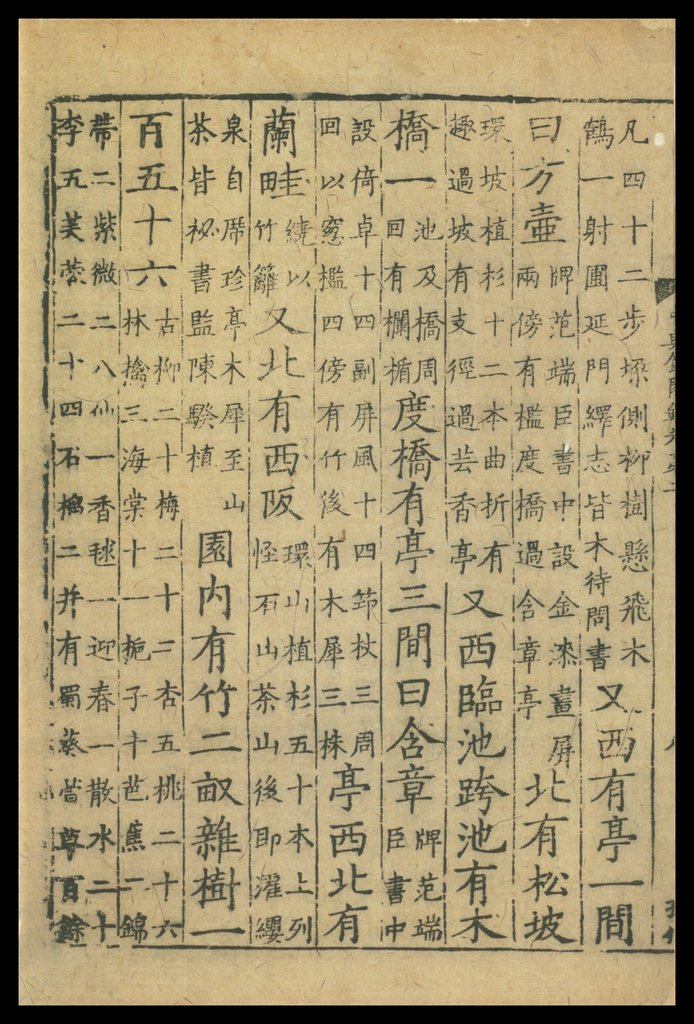 凡四十二步垜側柳樹懸飛木
鶴一射圃延門繹志皆木待問書
又西有亭一間
曰方壺
牌范端臣書中設金漆畫屏
兩傍有檻度橋過含章亭
北有松坡
環坡植杉十二本曲折有
趣過坡有支徑過芸香亭
又西臨池跨池有木
橋一
池及橋周
回有欄楯
度橋有亭三間曰含章
牌范端
臣書中
設倚卓十四副屏風十四笻杖三周
回以窓檻四傍有竹後有木犀三株
亭西北有
蘭畦
繞以
竹籬
又北有西阪
環山植杉五十本上列
怪石山茶山後即濯纓
泉自席珍亭木犀至山
茶皆秘書監陳騤植
園内有竹二畝雜樹一
百五十六
古柳二十梅二十二杏五桃二十六
林擒三海棠十一梔子十芭蕉一錦
帶二紫微二八仙一香毬一迎春一散水二十
李五芙蓉二十四石榴二并有蜀葵萱草百餘